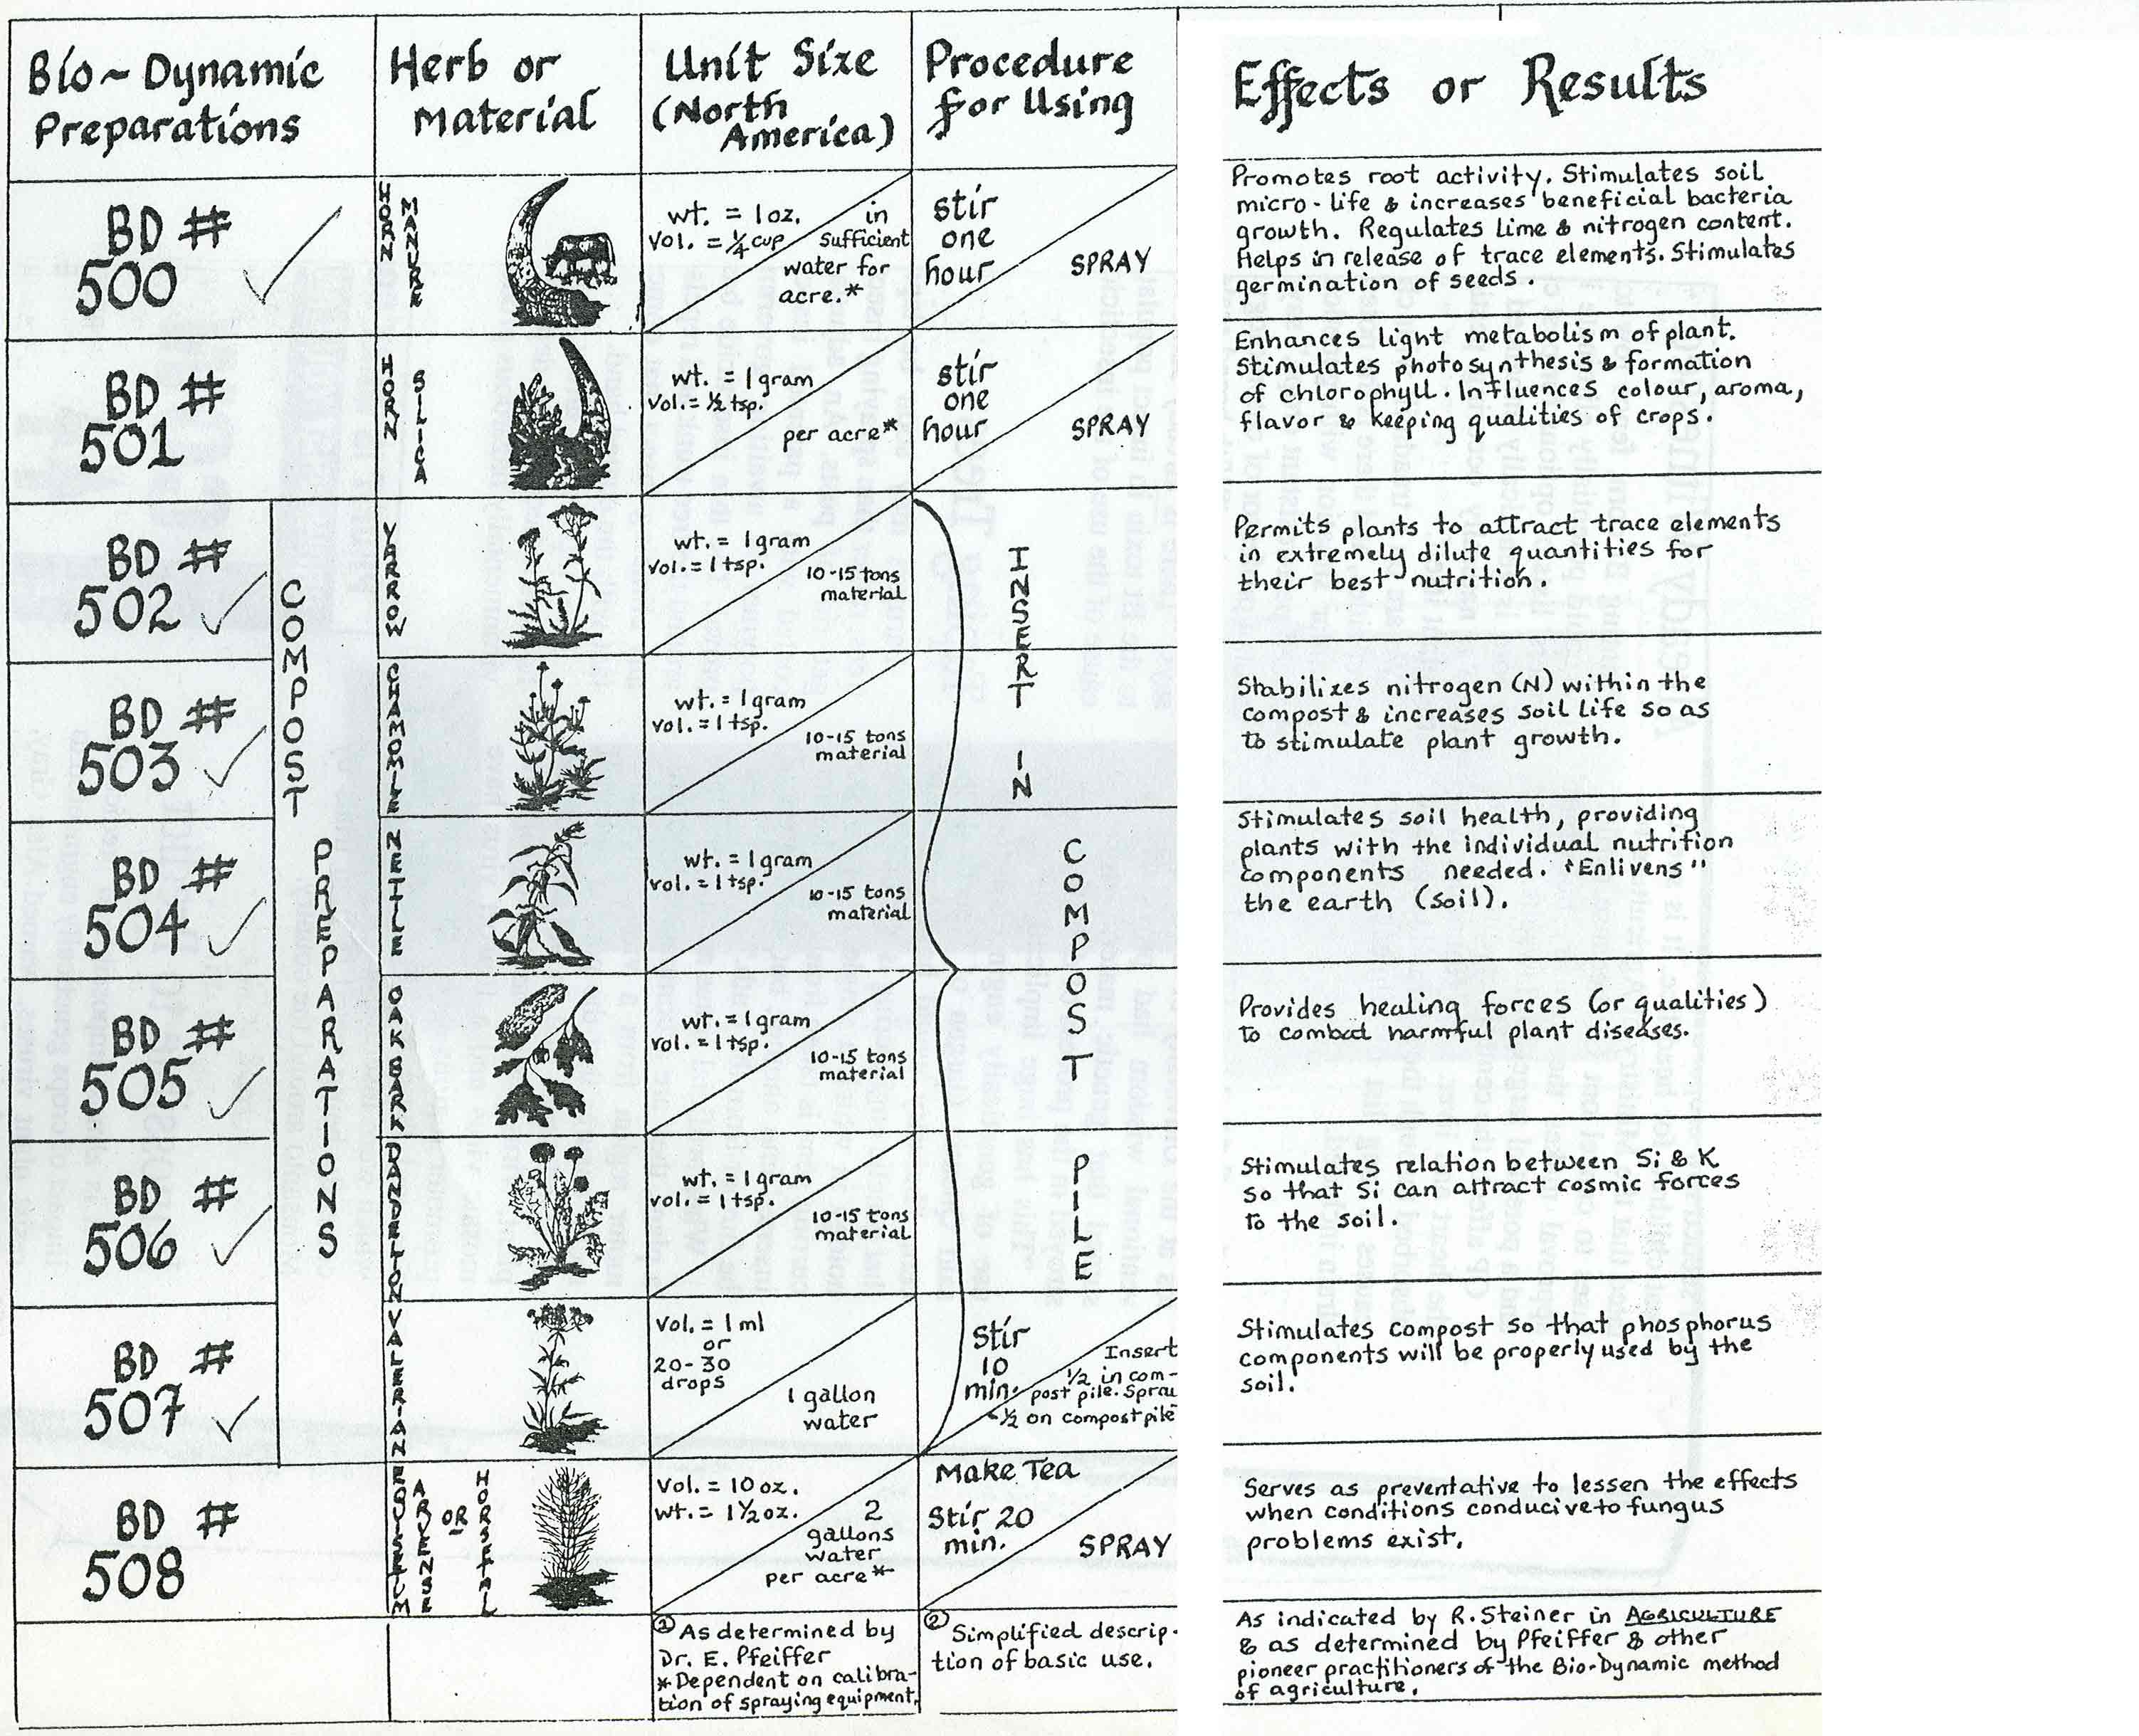 Bio~Dynamic
Preparations
Herb or
Material
Unit Size
(North
America)
Procedure
for Using
Effects or Results
BD #
500
HORN
MANURE
wt. = 1 oz.
vol. = ¼ cup
in
sufficient
water for
acre.*
stir
one
hour
SPRAY
Promotes root activity. Stimulates soil
micro-life & increases beneficial bacteria
growth. Regulates lime & nitrogen content.
Helps in release of trace elements. Stimulates
germination of seeds.
BD #
501
HORN
SILICA
wt. = 1 gram
vol. = ½ tsp.
per acre*
stir
one
hour
SPRAY
Enhances light metabolism of plant.
Stimulates photosynthesis & formation
of chlorophyll. Influences colour, aroma,
flavor & keeping qualities of crops.
COMPOST
PREPARATIONS
INSERT IN
COMPOST
PILE
BD #
502
YARROW
wt. = 1 gram
vol. = 1 tsp.
10-15 tons
material
Permits plants to attract trace elements
in extremely dilute quantities for
their best nutrition.
BD #
503
CHAMOMILE
wt. = 1 gram
vol. = 1 tsp.
10-15 tons
material
Stabilizes nitrogen (N) within the
compost & increases soil life so as
to stimulate plant growth.
BD #
504
NETTLE
wt. = 1 gram
vol. = 1 tsp.
10-15 tons
material
Stimulates soil health, providing
plants with the individual nutrition
components needed. "Enlivens"
the earth (soil).
BD #
505
OAK BARK
wt. = 1 gram
vol. = 1 tsp.
10-15 tons
material
Provides healing forces (or qualities)
to combat harmful plant diseases.
BD #
506
DANDELION
wt. = 1 gram
vol. = 1 tsp.
10-15 tons
material
Stimulates relation between Si & K
so that Si can attract cosmic forces
to the soil.
BD #
507
VALERIAN
Vol. = 1 ml
or
20-30
drops
1 gallon
water
Stir
10
min.
Insert
½ in com-
post pile. Spray
~½ on compost pile
Stimulates compost so that phosphorus
components will be properly used by the
soil.
BD #
508
EQUISETUM
ARVENSE
OR
HORSETAIL
Vol. = 10 oz.
wt. = 1½ oz.
2
gallons
water
per acre*
Make Tea
Stir 20
min.
SPRAY
Serves as preventative to lessen the effects
when conditions conducive to fungus
problems exist.
① As determined by
Dr. E. Pfeiffer
* Dependent on calibra-
tion of spraying equipment.
② Simplified descrip-
tion of basic use.
As indicated by R. Steiner in AGRICULTURE
& as determined by Pfeiffer & other
pioneer practitioners of the Bio-Dynamic method
of agriculture.